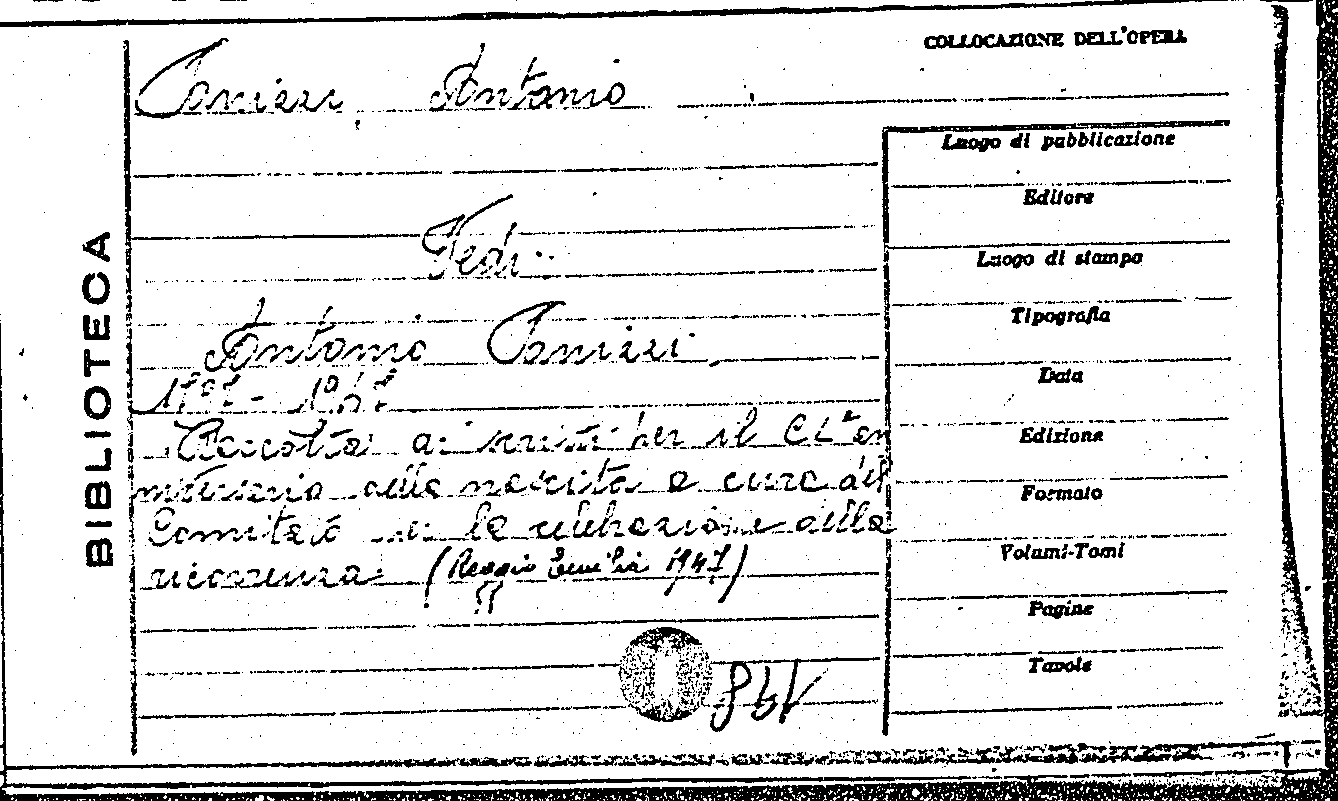 COLLOCAZIONE DELL'OPERA
Panizzi, Antonio
BIBLIOTECA
Vedi:
Antonio Panizzi.
1797 - 
Raccolta di scritti per il CL° an
niversario della nascita a cura del
Comitato per la celebrazione della
ricorrenza (Reggio Emilia 1947)
Luogo di pubblicazione
Editore
Luogo di stampa
Tipografia
Data
Edizione
Formato
Volumi-Tomi
Pagine
Tavole